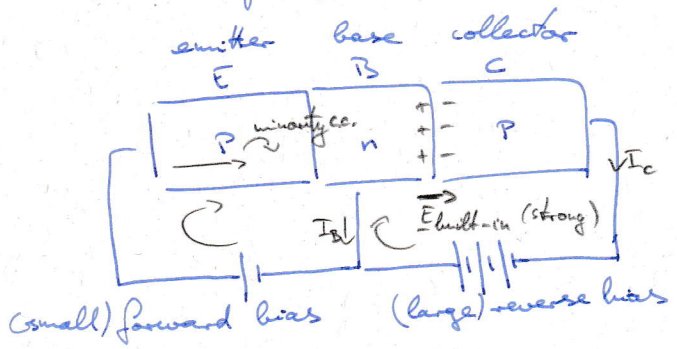 emitter base collector
E B C
minority c.c.
P n + - P
+ -
+ -
I_C
I_B E built-in (strong)
(small) forward bias (large) reverse bias